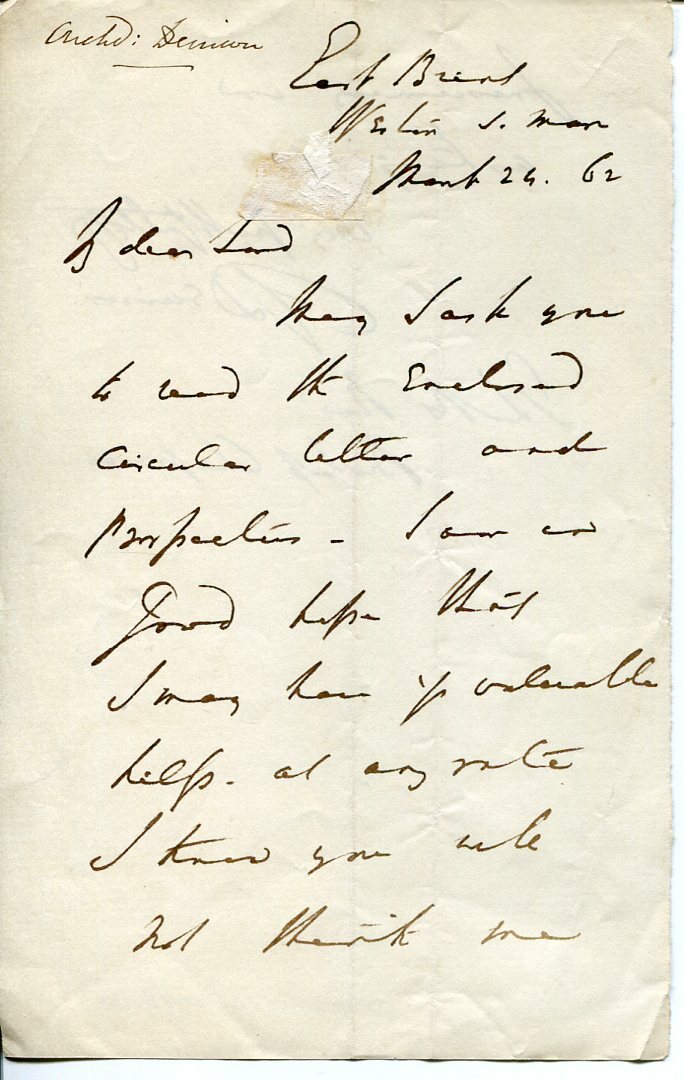 Archd: Denison
East Brent
Weston S. Mare
March 24. 62
My dear Lord
May I ask you
to read the Enclosed
circular letter and
Prospectus – I am in
Good hope that
I may have yr valuable
help. at any rate
I know you will
not think me